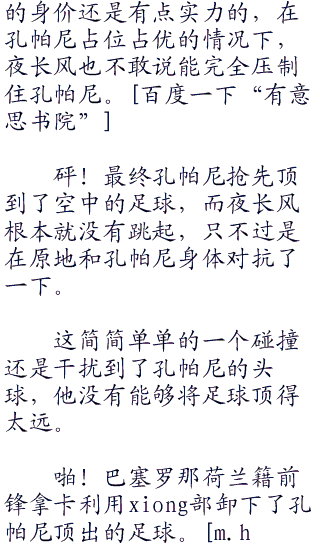 的身价还是有点实力的，在
孔帕尼占位占优的情况下，
夜长风也不敢说能完全压制
住孔帕尼。[百度一下“有意
思书院”]
砰！最终孔帕尼抢先顶
到了空中的足球，而夜长风
根本就没有跳起，只不过是
在原地和孔帕尼身体对抗了
一下。
这简简单单的一个碰撞
还是干扰到了孔帕尼的头
球，他没有能够将足球顶得
太远。
啪！巴塞罗那荷兰籍前
锋拿卡利用xiong部卸下了孔
帕尼顶出的足球。[m.h